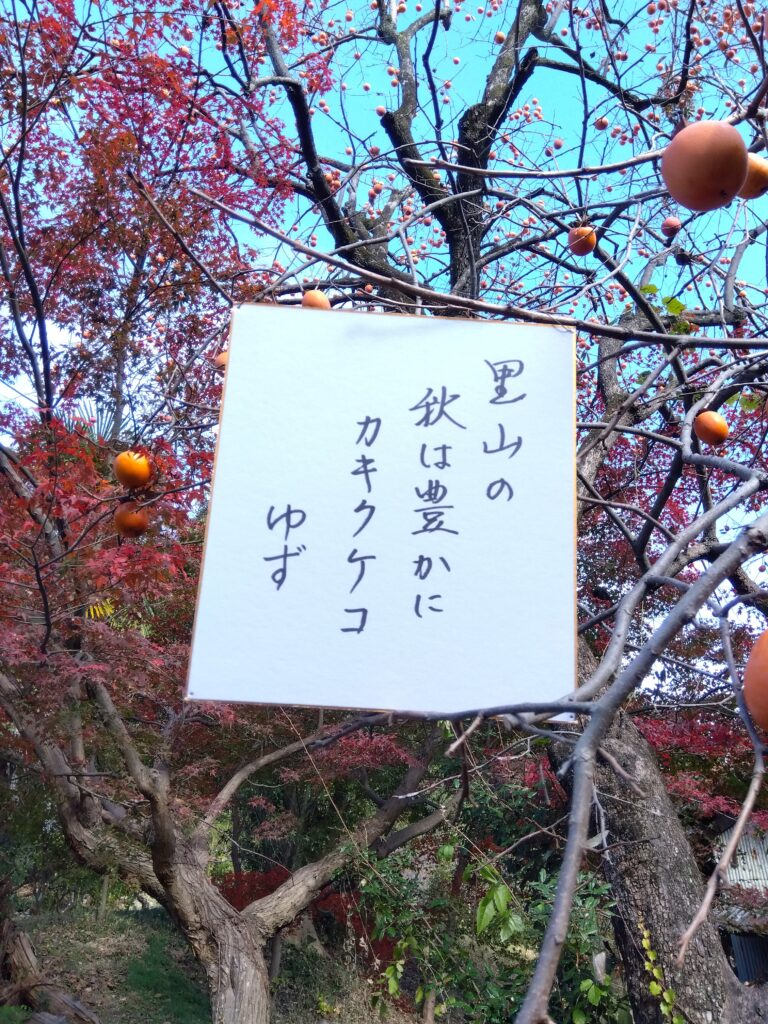 里山の
秋は豊かに
カキクケコ
ゆず